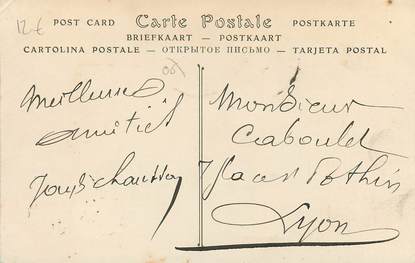 12€
POST CARD Carte Postale POSTKARTE
BRIEFKAART — POSTKAART
CARTOLINA POSTALE — ОТКРЫТОЕ ПИСЬМО — TARJETA POSTAL
Meilleures
amitiés
Monsieur
Caboulet
7 place St Pothin
Lyon